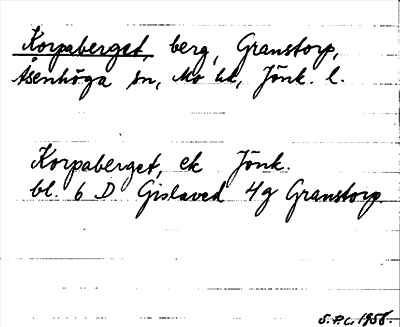 Korpaberget, berg, Granstorp,
Åsenhöga sn, Mo hd, Jönk. l.
Korpaberget, ek Jönk.
bl. 6 D Gislaved 4g Granstorp
S.P.C. 1958.